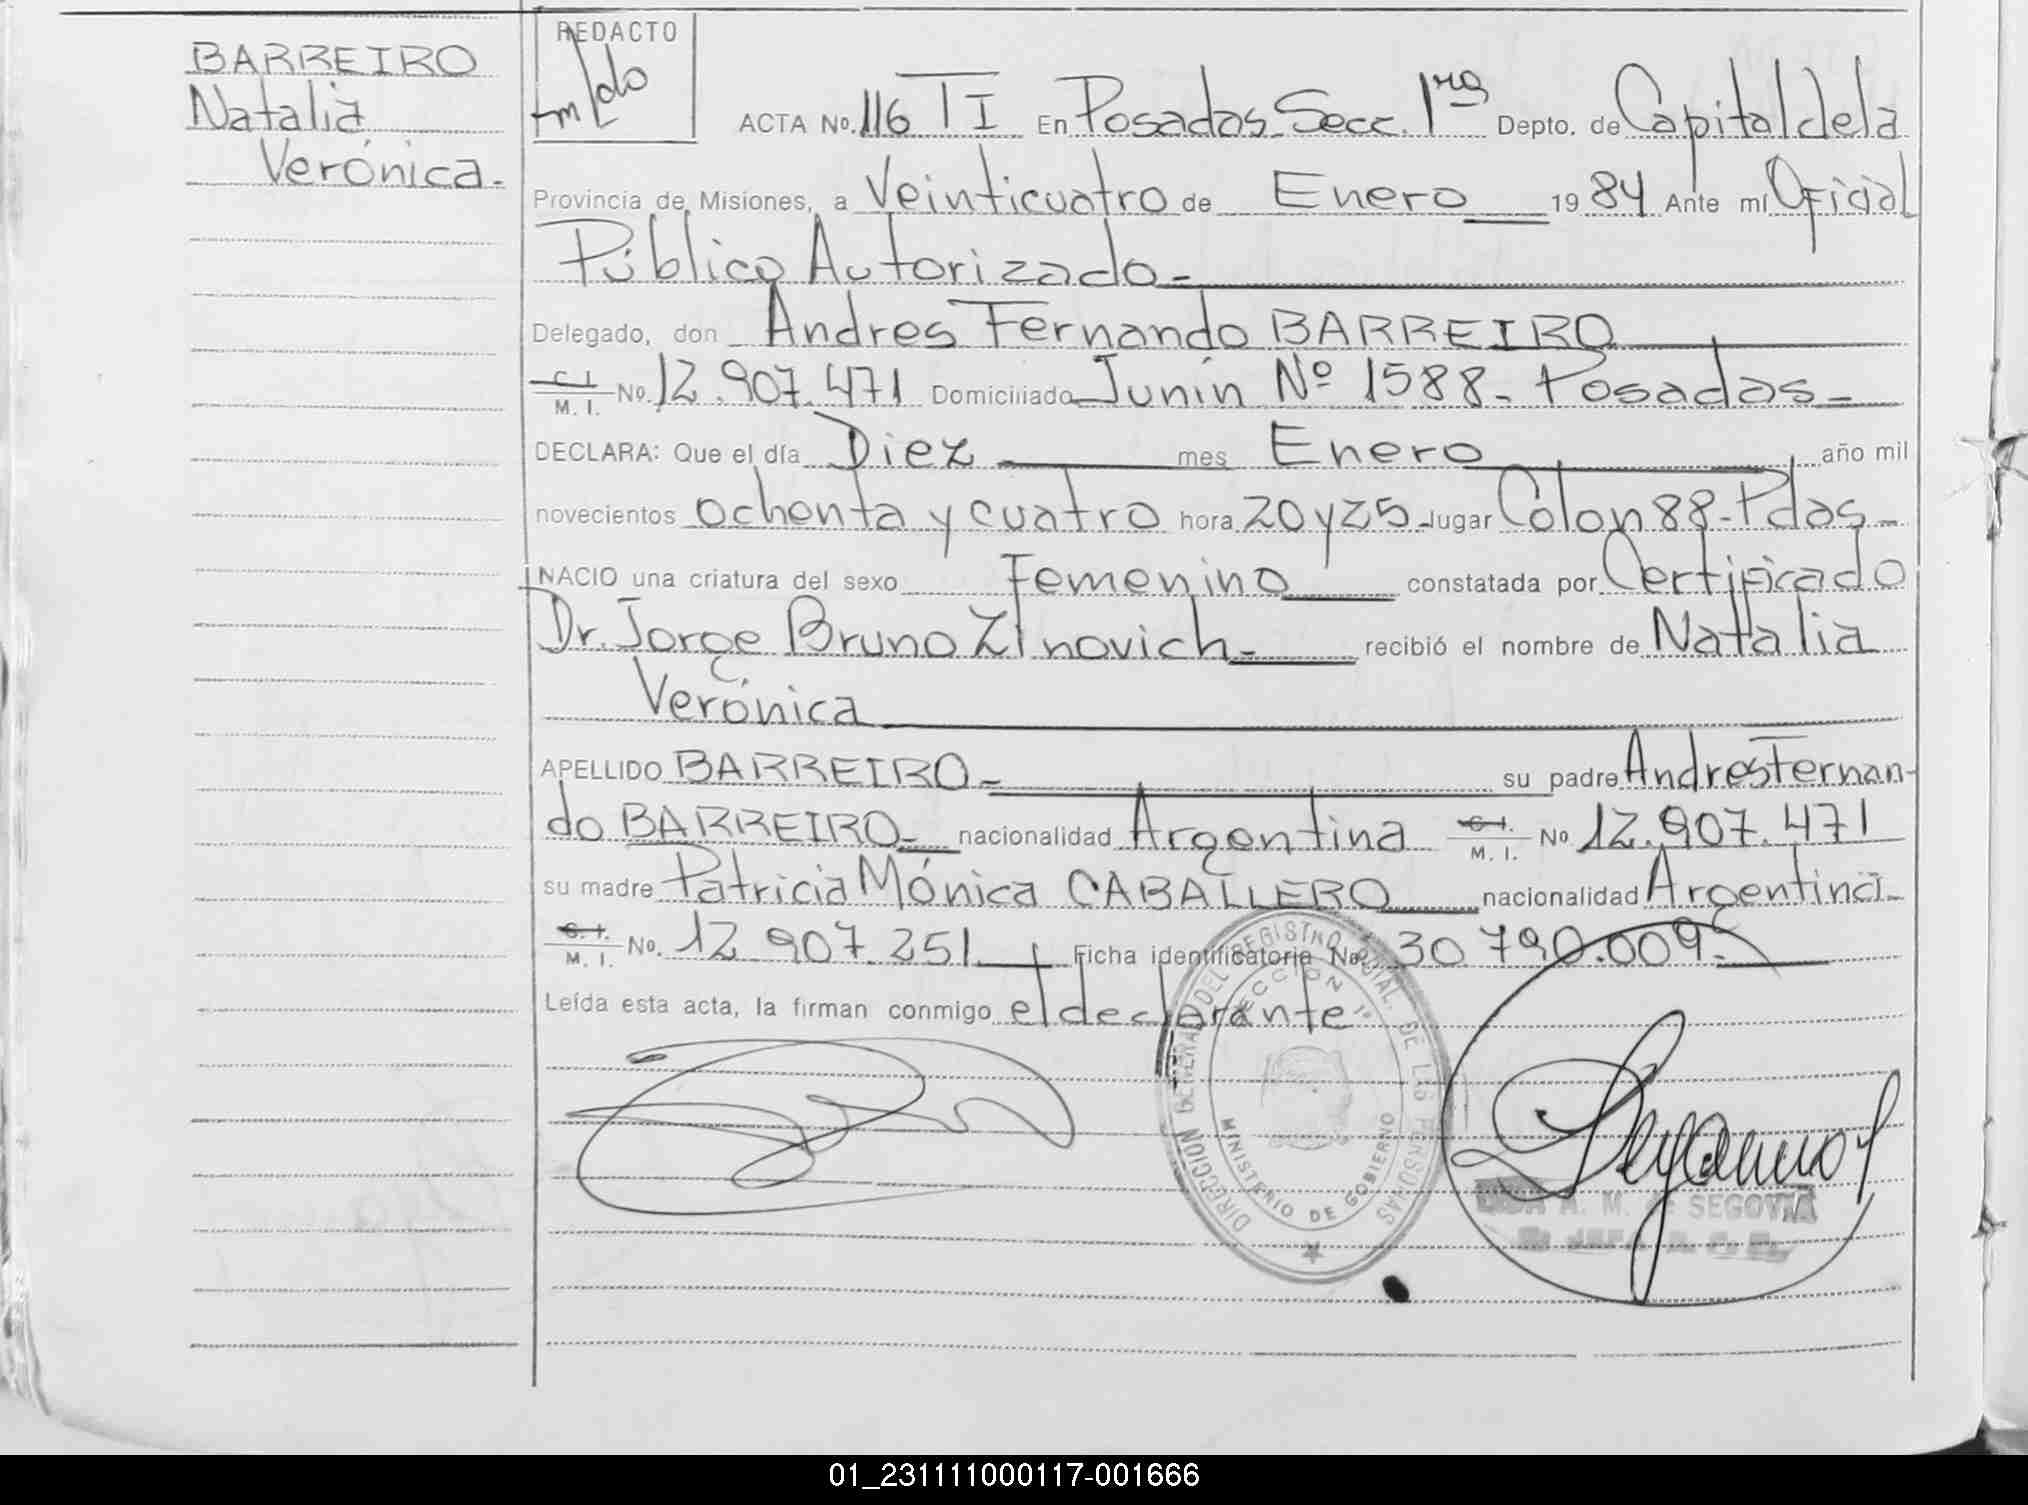 BARREIRO
Natalia
Verónica.
REDACTO
ACTA No. 116 TI En Posadas Secc. 1ra Depto. de Capital de la
Provincia de Misiones, a Veinticuatro de Enero 1984 Ante mí Oficial
Público Autorizado-
Delegado, don Andres Fernando BARREIRO
C. I.
M. I. No. 12.907.471 Domiciliado Junín Nº 1588- Posadas-
DECLARA: Que el día Diez mes Enero año mil
novecientos ochenta y cuatro hora 20 y 25 lugar Colon 88- Pdas-
NACIO una criatura del sexo Femenino constatada por Certificado
Dr. Jorge Bruno Zinovich- recibió el nombre de Natalia
Verónica
APELLIDO BARREIRO- su padre Andres Fernan-
do BARREIRO- nacionalidad Argentina C. I.
M. I. No. 12.907.471
su madre Patricia Mónica CABALLERO nacionalidad Argentina-
C. I.
M. I. No. 12.907.251 Ficha identificatoria No. 30.790.009-
Leída esta acta, la firman conmigo el declarante
DIRECCION GENERAL DEL REGISTRO CIVIL DE LAS PERSONAS
SECCION 1ª
MINISTERIO DE GOBIERNO
A. M. de SEGOVIA
01_231111000117-001666